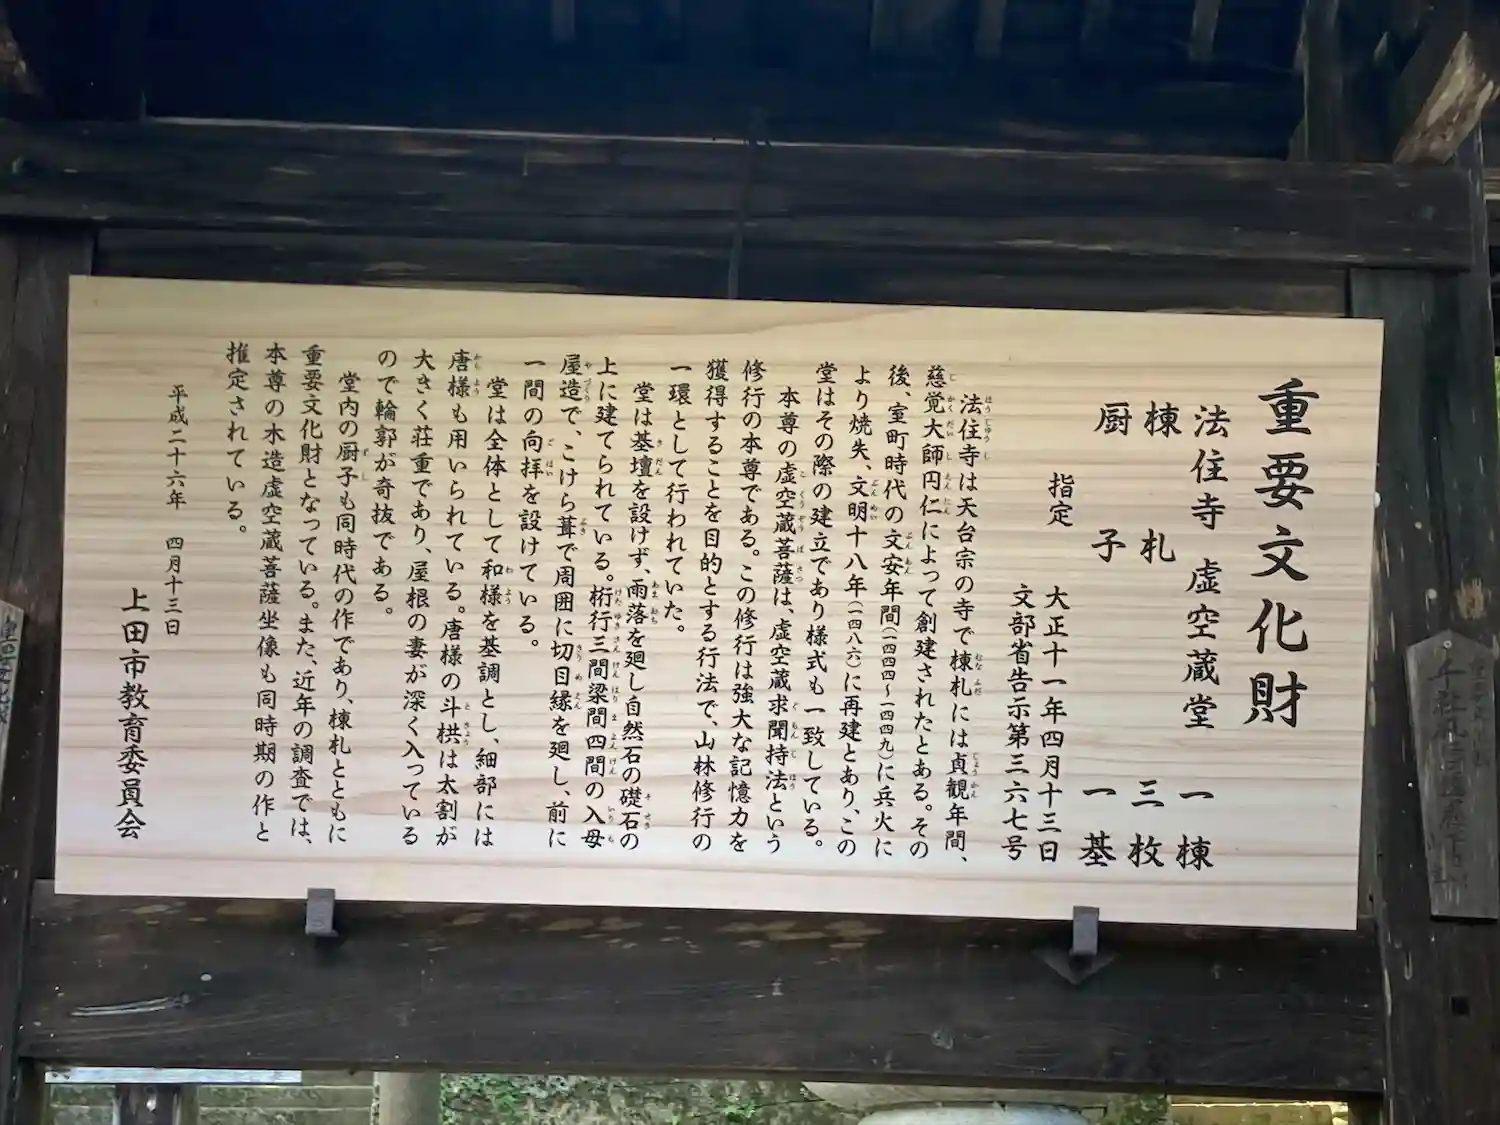 重要文化財
法住寺 虚空蔵堂 一棟
棟札 三枚
厨子 一基
指定 大正十一年四月十三日
文部省告示第三六七号
法住寺は天台宗の寺で棟札には貞観年間、
慈覚大師円仁によって創建されたとある。その
後、室町時代の文安年間(一四四四~一四四九)に兵火に
より焼失、文明十八年(一四八六)に再建とあり、この
堂はその際の建立であり様式も一致している。
本尊の虚空蔵菩薩は、虚空蔵求聞持法という
修行の本尊である。この修行は強大な記憶力を
獲得することを目的とする行法で、山林修行の
一環として行われていた。
堂は基壇を設けず、雨落を廻し自然石の礎石の
上に建てられている。桁行三間梁間四間の入母
屋造で、こけら葺で周囲に切目縁を廻し、前に
一間の向拝を設けている。
堂は全体として和様を基調とし、細部には
唐様も用いられている。唐様の斗栱は太割が
大きく荘重であり、屋根の妻が深く入っている
ので輪郭が奇抜である。
堂内の厨子も同時代の作であり、棟札とともに
重要文化財となっている。また、近年の調査では、
本尊の木造虚空蔵菩薩坐像も同時期の作と
推定されている。
平成二十六年 四月十三日
上田市教育委員会